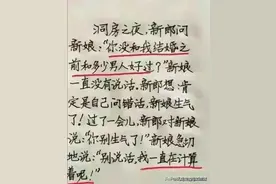 洞房之夜，新郎问
新娘：“你没和我结婚之
前和多少男人好过？”新娘
一直没有说话。新郎想：肯
定是自己问错话，新娘生气
了！过了一会儿，新郎对新娘
说：“你别生气了！”新娘急切
地说：“别说话，我一直在计算
着呢！”